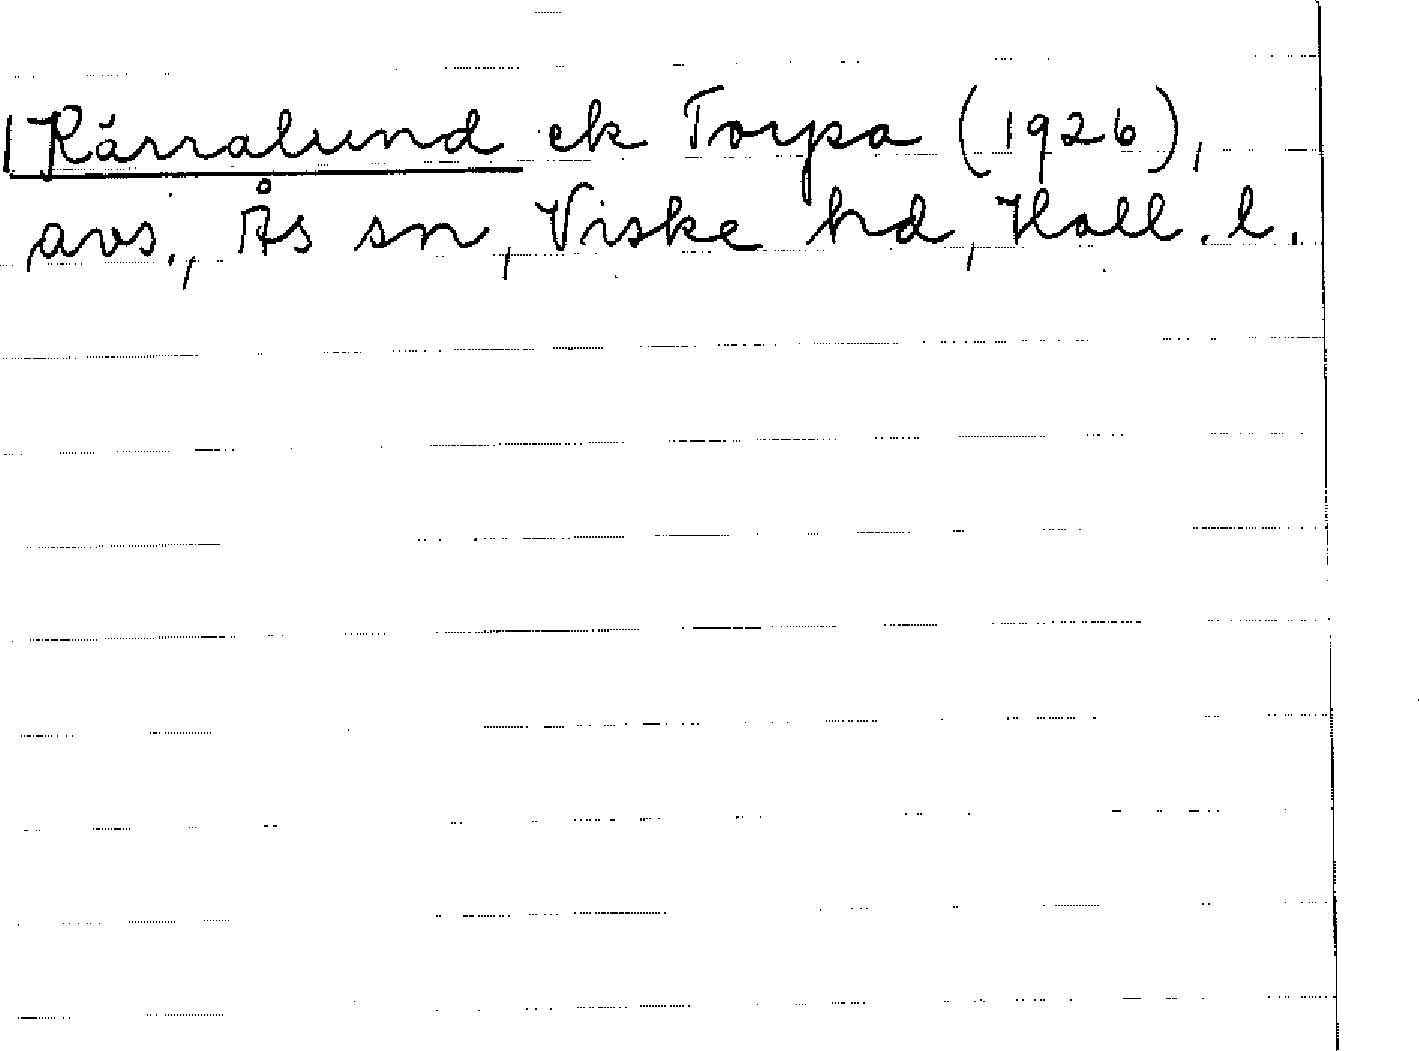 Kärralund ek Torpa (1926),
avs., Ås sn, Viske hd, Hall. l.